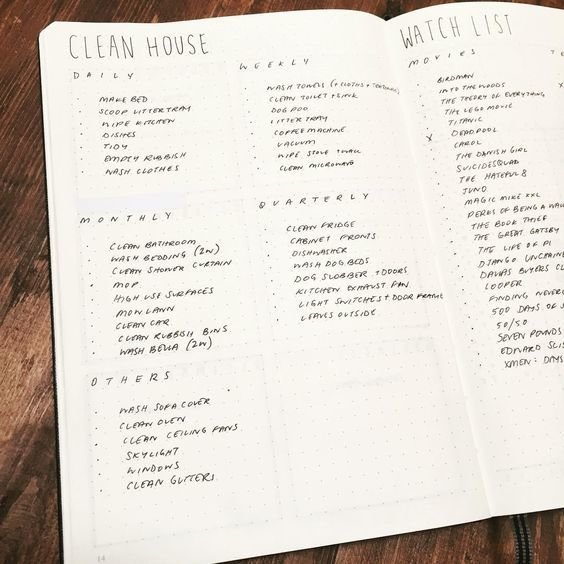 CLEAN HOUSE
DAILY
MAKE BED
SCOOP LITTER TRAY
WIPE KITCHEN
DISHES
TIDY
EMPTY RUBBISH
WASH CLOTHES
WEEKLY
WASH TOWELS (+ CLOTHS +
CLEAN TOILET + SINK
DOG POO
LITTER TRAY
COFFEE MACHINE
VACUUM
WIPE STOVE + WALL
CLEAN MICROWAVE
MONTHLY
CLEAN BATHROOM
WASH BEDDING (2W)
CLEAN SHOWER CURTAIN
MOP
HIGH USE SURFACES
MOW LAWN
CLEAN CAR
CLEAN RUBBISH BINS
WASH BELLA (2W)
QUARTERLY
CLEAN FRIDGE
CABINET FRONTS
DISHWASHER
WASH DOG BEDS
DOG SLOBBER + DOORS
KITCHEN EXHAUST FAN
LIGHT SWITCHES + DOOR FRAME
LEAVES OUTSIDE
OTHERS
WASH SOFA COVER
CLEAN OVEN
CLEAN CEILING FANS
SKYLIGHT
WINDOWS
CLEAN GUTTERS
14
WATCH LIST
MOVIES
BIRDMAN
INTO THE WOODS
THE THEORY OF EVERYTHING
THE LEGO MOVIE
TITANIC
X DEADPOOL
CAROL
THE DANISH GIRL
SUICIDE SQUAD
THE HATEFUL 8
JUNO
MAGIC MIKE XXL
PERKS OF BEING A WALL
THE BOOK THIEF
THE GREAT GATSBY
THE LIFE OF PI
DJANGO UNCHAINE
DALLAS BUYERS CL
LOOPER
FINDING NEVER
500 DAYS OF S
50/50
SEVEN POUNDS
EDWARD SCIS
XMEN: DAYS